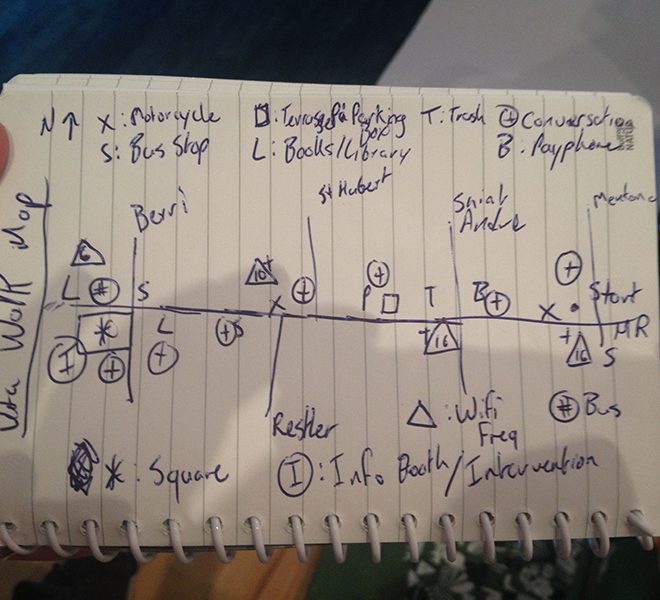 N ↑ X : Motorcycle □ : Terrasse Pá Parking Box T : Trash ⊕ Conversation
S : Bus Stop L : Books/Library B : Payphone
Uta Walk Map
Berri St Hubert Saint Andre Mentana
6 10+
L # S X + P + □ T B + + X • Start
MR
* L + S +16 +16 S
I + +
Resther △ : Wifi Freq # Bus
* : Square I : Info Booth / Intervention